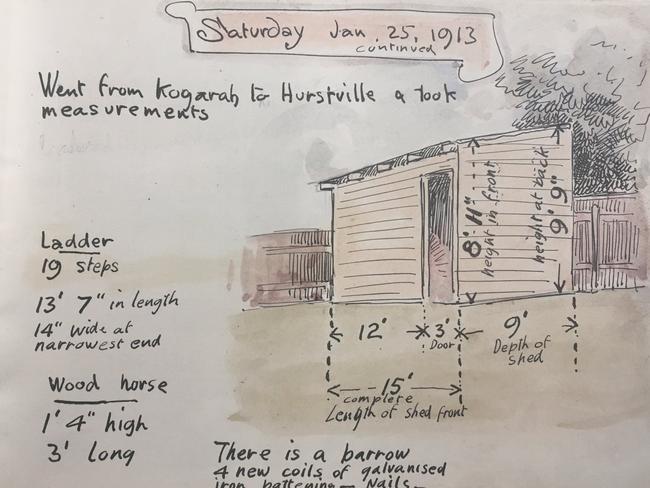 Saturday Jan. 25, 1913
continued
Went from Kogarah to Hurstville & took
measurements
Ladder
19 steps
13' 7" in length
14" wide at
narrowest end
Wood horse
1' 4" high
3' long
8' 11"
height in front
height at back
9' 9"
12'
3'
Door
9'
Depth of
shed
15'
complete
Length of shed front
There is a barrow
4 new coils of galvanised
iron battening — Nails —